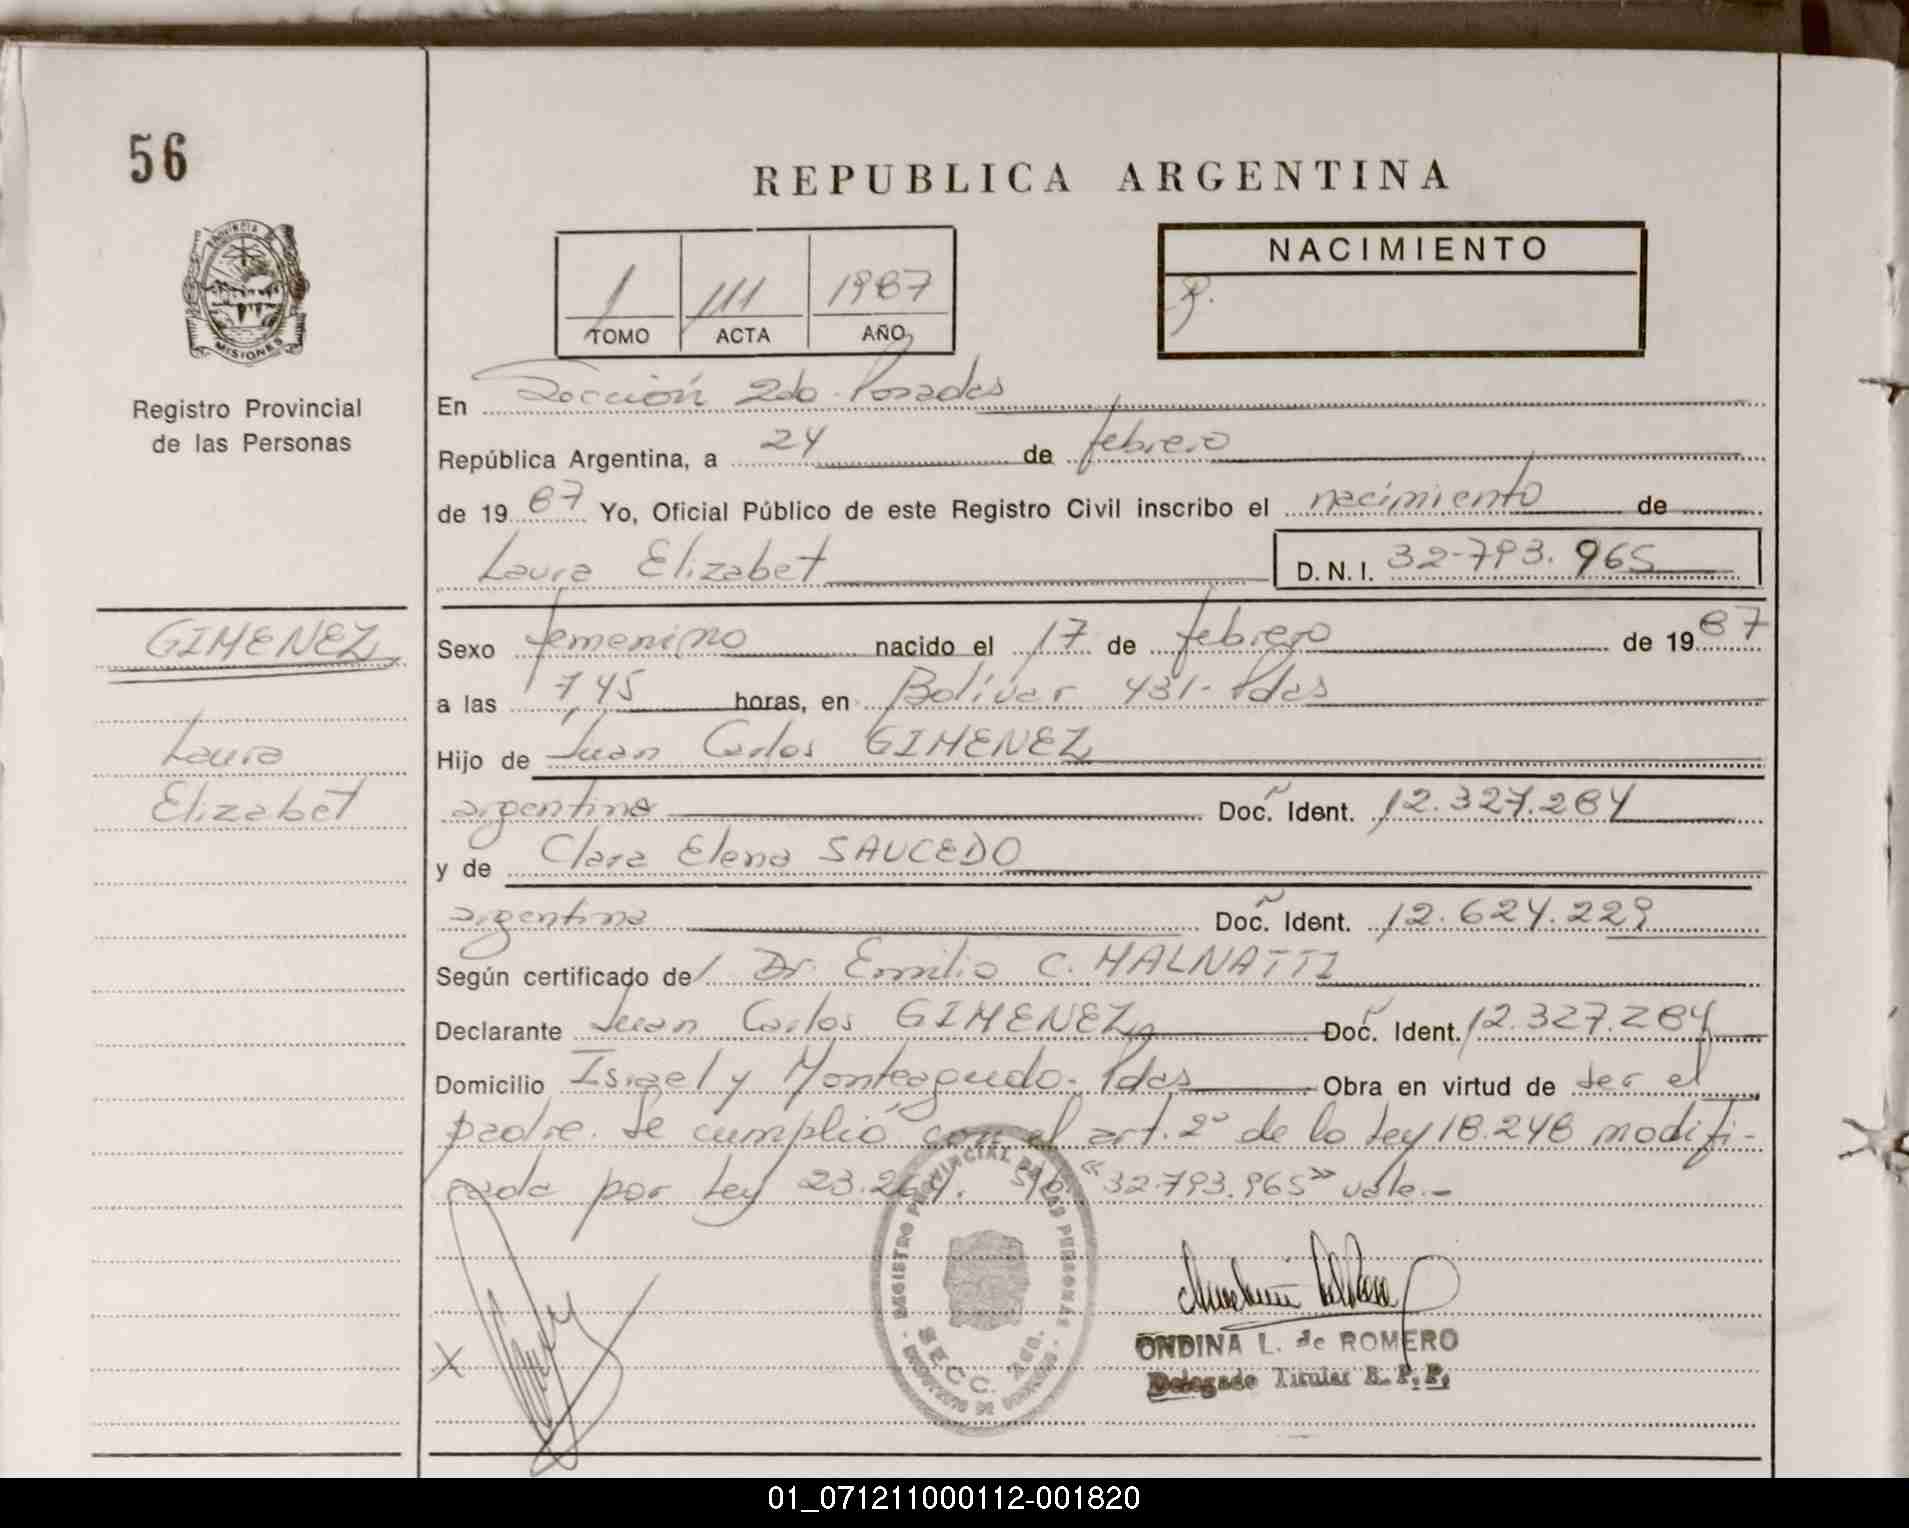 56
REPUBLICA ARGENTINA
PROVINCIA DE
MISIONES
Registro Provincial
de las Personas
1 111 1987
TOMO ACTA AÑO
NACIMIENTO
En Sección 2da. Posadas
República Argentina, a 24 de febrero
de 1987 Yo, Oficial Público de este Registro Civil inscribo el nacimiento de
Laura Elizabet D.N.I. 32.793.965
GIMENEZ
Laura
Elizabet
Sexo femenino nacido el 17 de febrero de 1987
a las 7,45 horas, en Bolívar 431- Pdas
Hijo de Juan Carlos GIMENEZ
argentino Doc. Ident. 12.327.284
y de Clara Elena SAUCEDO
argentina Doc. Ident. 12.624.229
Según certificado de Dr. Emilio C. MALNATTI
Declarante Juan Carlos GIMENEZ Doc. Ident. 12.327.284
Domicilio Israel y Monteagudo- Pdas Obra en virtud de ser el
padre. Se cumplió con el art. 2° de la Ley 18.248 modifi-
cada por Ley 23.264. S/b "32.793.965" vale.-
REGISTRO PROVINCIAL DE LAS PERSONAS
SECC. 2da.
ONDINA L. de ROMERO
Delegado Titular R. P. P.
X
01_071211000112-001820